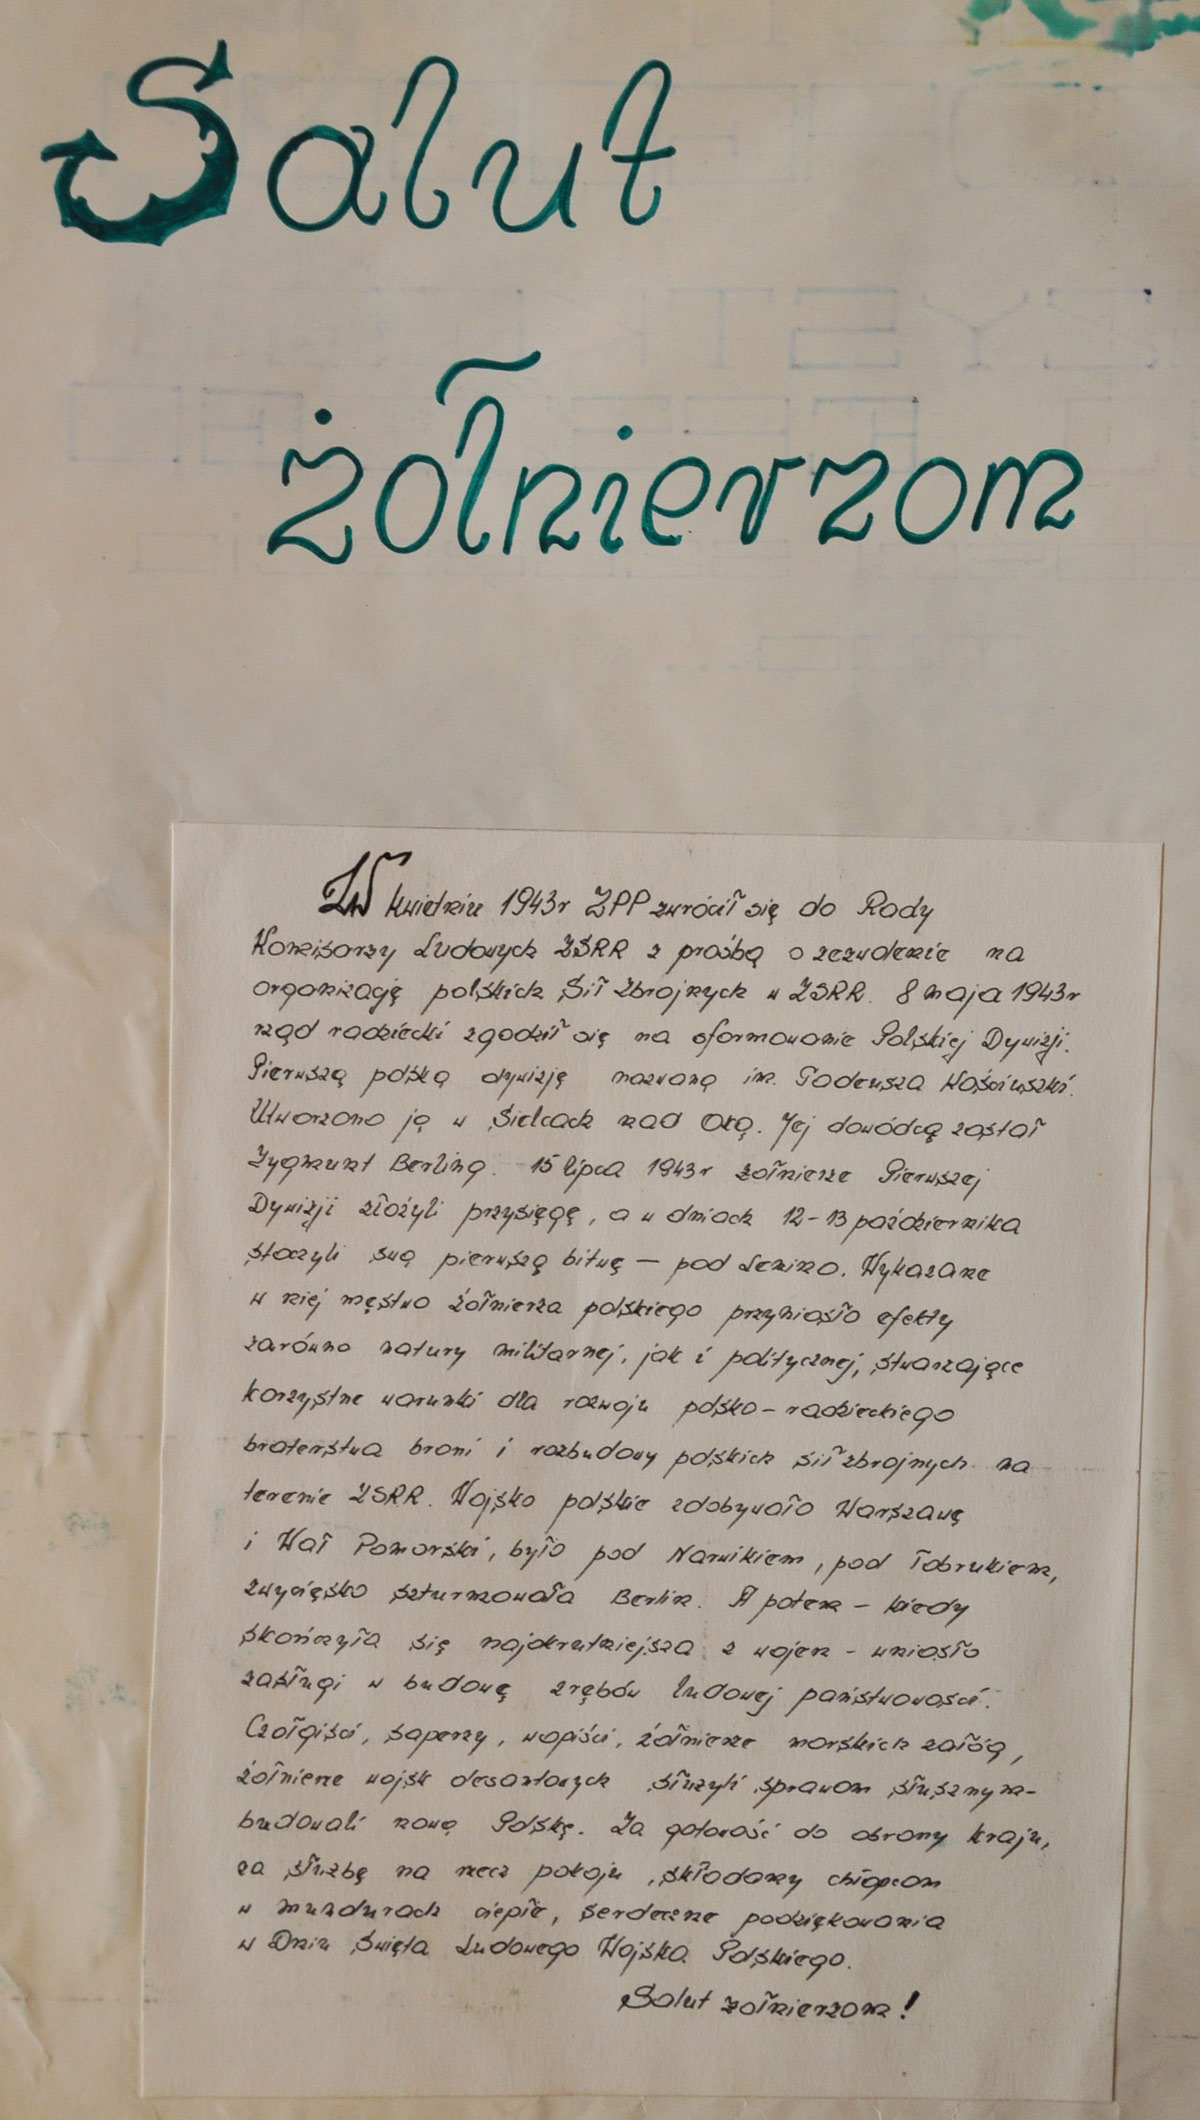 Salut
żołnierzom
W kwietniu 1943r ZPP zwrócił się do Rady
Komisarzy Ludowych ZSRR z prośbą o zezwolenie na
organizację polskich Sił Zbrojnych w ZSRR. 8 maja 1943r
rząd radziecki zgodził się na sformowanie Polskiej Dywizji.
Pierwszą polską dywizję nazwaną im. Tadeusza Kościuszki.
Utworzono ją w Sielcach nad Oką. Jej dowódcą został
Zygmunt Berling. 15 lipca 1943r żołnierze Pierwszej
Dywizji złożyli przysięgę, a w dniach 12-13 października
stoczyli swą pierwszą bitwę — pod Lenino. Wykazane
w niej męstwo żołnierza polskiego przyniosło efekty
zarówno natury militarnej, jak i politycznej, stwarzające
korzystne warunki dla rozwoju polsko-radzieckiego
braterstwa broni i rozbudowy polskich sił zbrojnych na
terenie ZSRR. Wojsko polskie zdobywało Warszawę
i Wał Pomorski, było pod Narwikiem, pod Tobrukiem,
zwycięsko szturmowała Berlin. A potem - kiedy
skończyła się najokrutniejsza z wojen - wniosło
zasługi w budowę zrębów ludowej państwowości.
Czołgiści, saperzy, wopiści, żołnierze morskich załóg,
żołnierze wojsk desantowych służyli sprawom słusznym-
budowali nową Polskę. Za gotowość do obrony kraju,
za służbę na rzecz pokoju, składamy chłopcom
w mundurach ciepłe, serdeczne podziękowania
w Dniu Święta Ludowego Wojska Polskiego.
Salut żołnierzom!